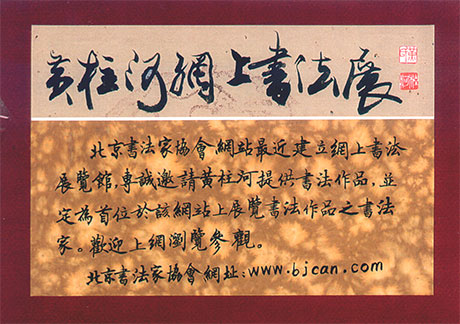 黄柱河網上书法展
北京書法家協會網站最近建立網上書法
展覽館,專誠邀請黄柱河提供書法作品,並
定為首位於該網站上展覽書法作品之書法
家。歡迎上網瀏覽參觀。
北京書法家協會網址:www.bjcan.com